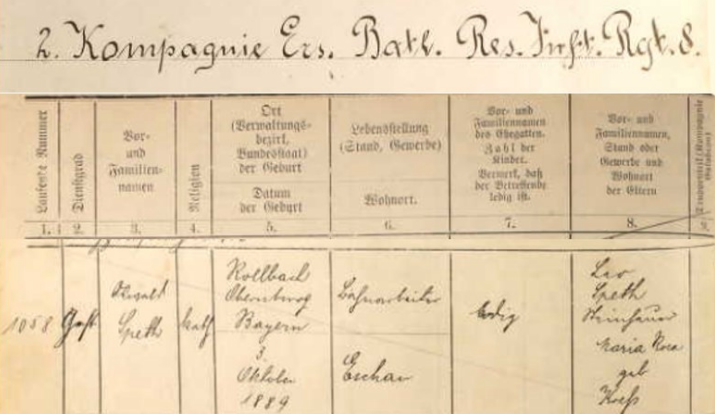 2. Kompagnie Ers. Batl. Res. Inft. Rgt. 8.
Laufende Nummer
Dienstgrad
Vor-
und
Familien-
namen
Religion
Ort
(Verwaltungs-
bezirk,
Bundesstaat)
der Geburt
Datum
der Geburt
Lebensstellung
(Stand, Gewerbe)
Wohnort.
Vor- und
Familiennamen
des Ehegatten.
Zahl der
Kinder.
Vermerk, daß
der Betreffende
ledig ist.
Vor- und
Familiennamen,
Stand oder
Gewerbe und
Wohnort
der Eltern
1. 2. 3. 4. 5. 6. 7. 8. 9.
1058
Oswald
Speth
kath
Rollbach
Obernburg
Bayern
3.
Oktober
1889
Bahnarbeiter
Eschau
ledig
Leo
Speth
Steinhauer
Maria Rosa
geb